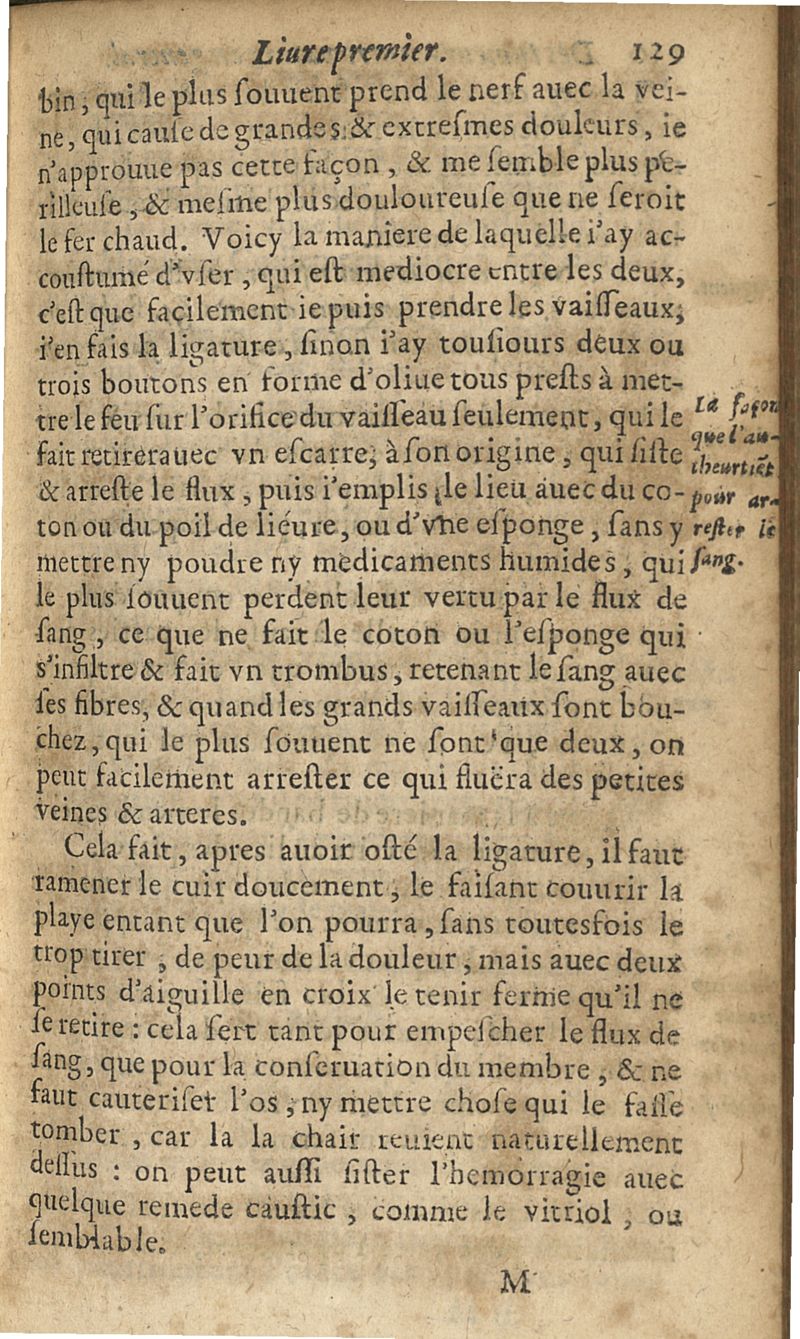 Liure premier. 129
bin, qui le plus ſouuent prend le nerf auec la vei-
ne, qui cauſe de grandes & extreſmes douleurs, ie
n'approuue pas cette façon, & me ſemble plus pe-
rilleuſe, & meſme plus douloureuſe que ne ſeroit
le fer chaud. Voicy la maniere de laquelle i'ay ac-
couſtumé d'vſer, qui eſt mediocre entre les deux,
c'eſt que facilement ie puis prendre les vaiſſeaux,
i'en fais la ligature, ſinon i'ay touſiours deux ou
trois boutons en forme d'oliue tous preſts à met-
tre le feu ſur l'orifice du vaiſſeau ſeulement, qui le
fait retirer auec vn eſcarre, à ſon origine, qui ſiſte
& arreſte le flux, puis i'emplis le lieu auec du co-
ton ou du poil de liéure, ou d'vne eſponge, ſans y
mettre ny poudre ny medicaments humides, qui
le plus ſouuent perdent leur vertu par le flux de
ſang, ce que ne fait le coton ou l'eſponge qui
s'infiltre & fait vn trombus, retenant le ſang auec
ſes fibres, & quand les grands vaiſſeaux ſont bou-
chez, qui le plus ſouuent ne ſont que deux, on
peut facilement arreſter ce qui fluëra des petites
veines & arteres.
La façon
que l'au-
theur tiēt
pour ar-
reſter le
ſang.
Cela fait, apres auoir oſté la ligature, il faut
ramener le cuir doucement, le faiſant couurir la
playe entant que l'on pourra, ſans toutesfois le
trop tirer, de peur de la douleur, mais auec deux
points d'aiguille en croix le tenir ferme qu'il ne
ſe retire : cela ſert tant pour empeſcher le flux de
ſang, que pour la conſeruation du membre, & ne
faut cauteriſer l'os, ny mettre choſe qui le faſſe
tomber, car la la chair reuient naturellement
deſſus : on peut auſſi ſiſter l'hemorragie auec
quelque remede cauſtic, comme le vitriol, ou
ſemblable.
M